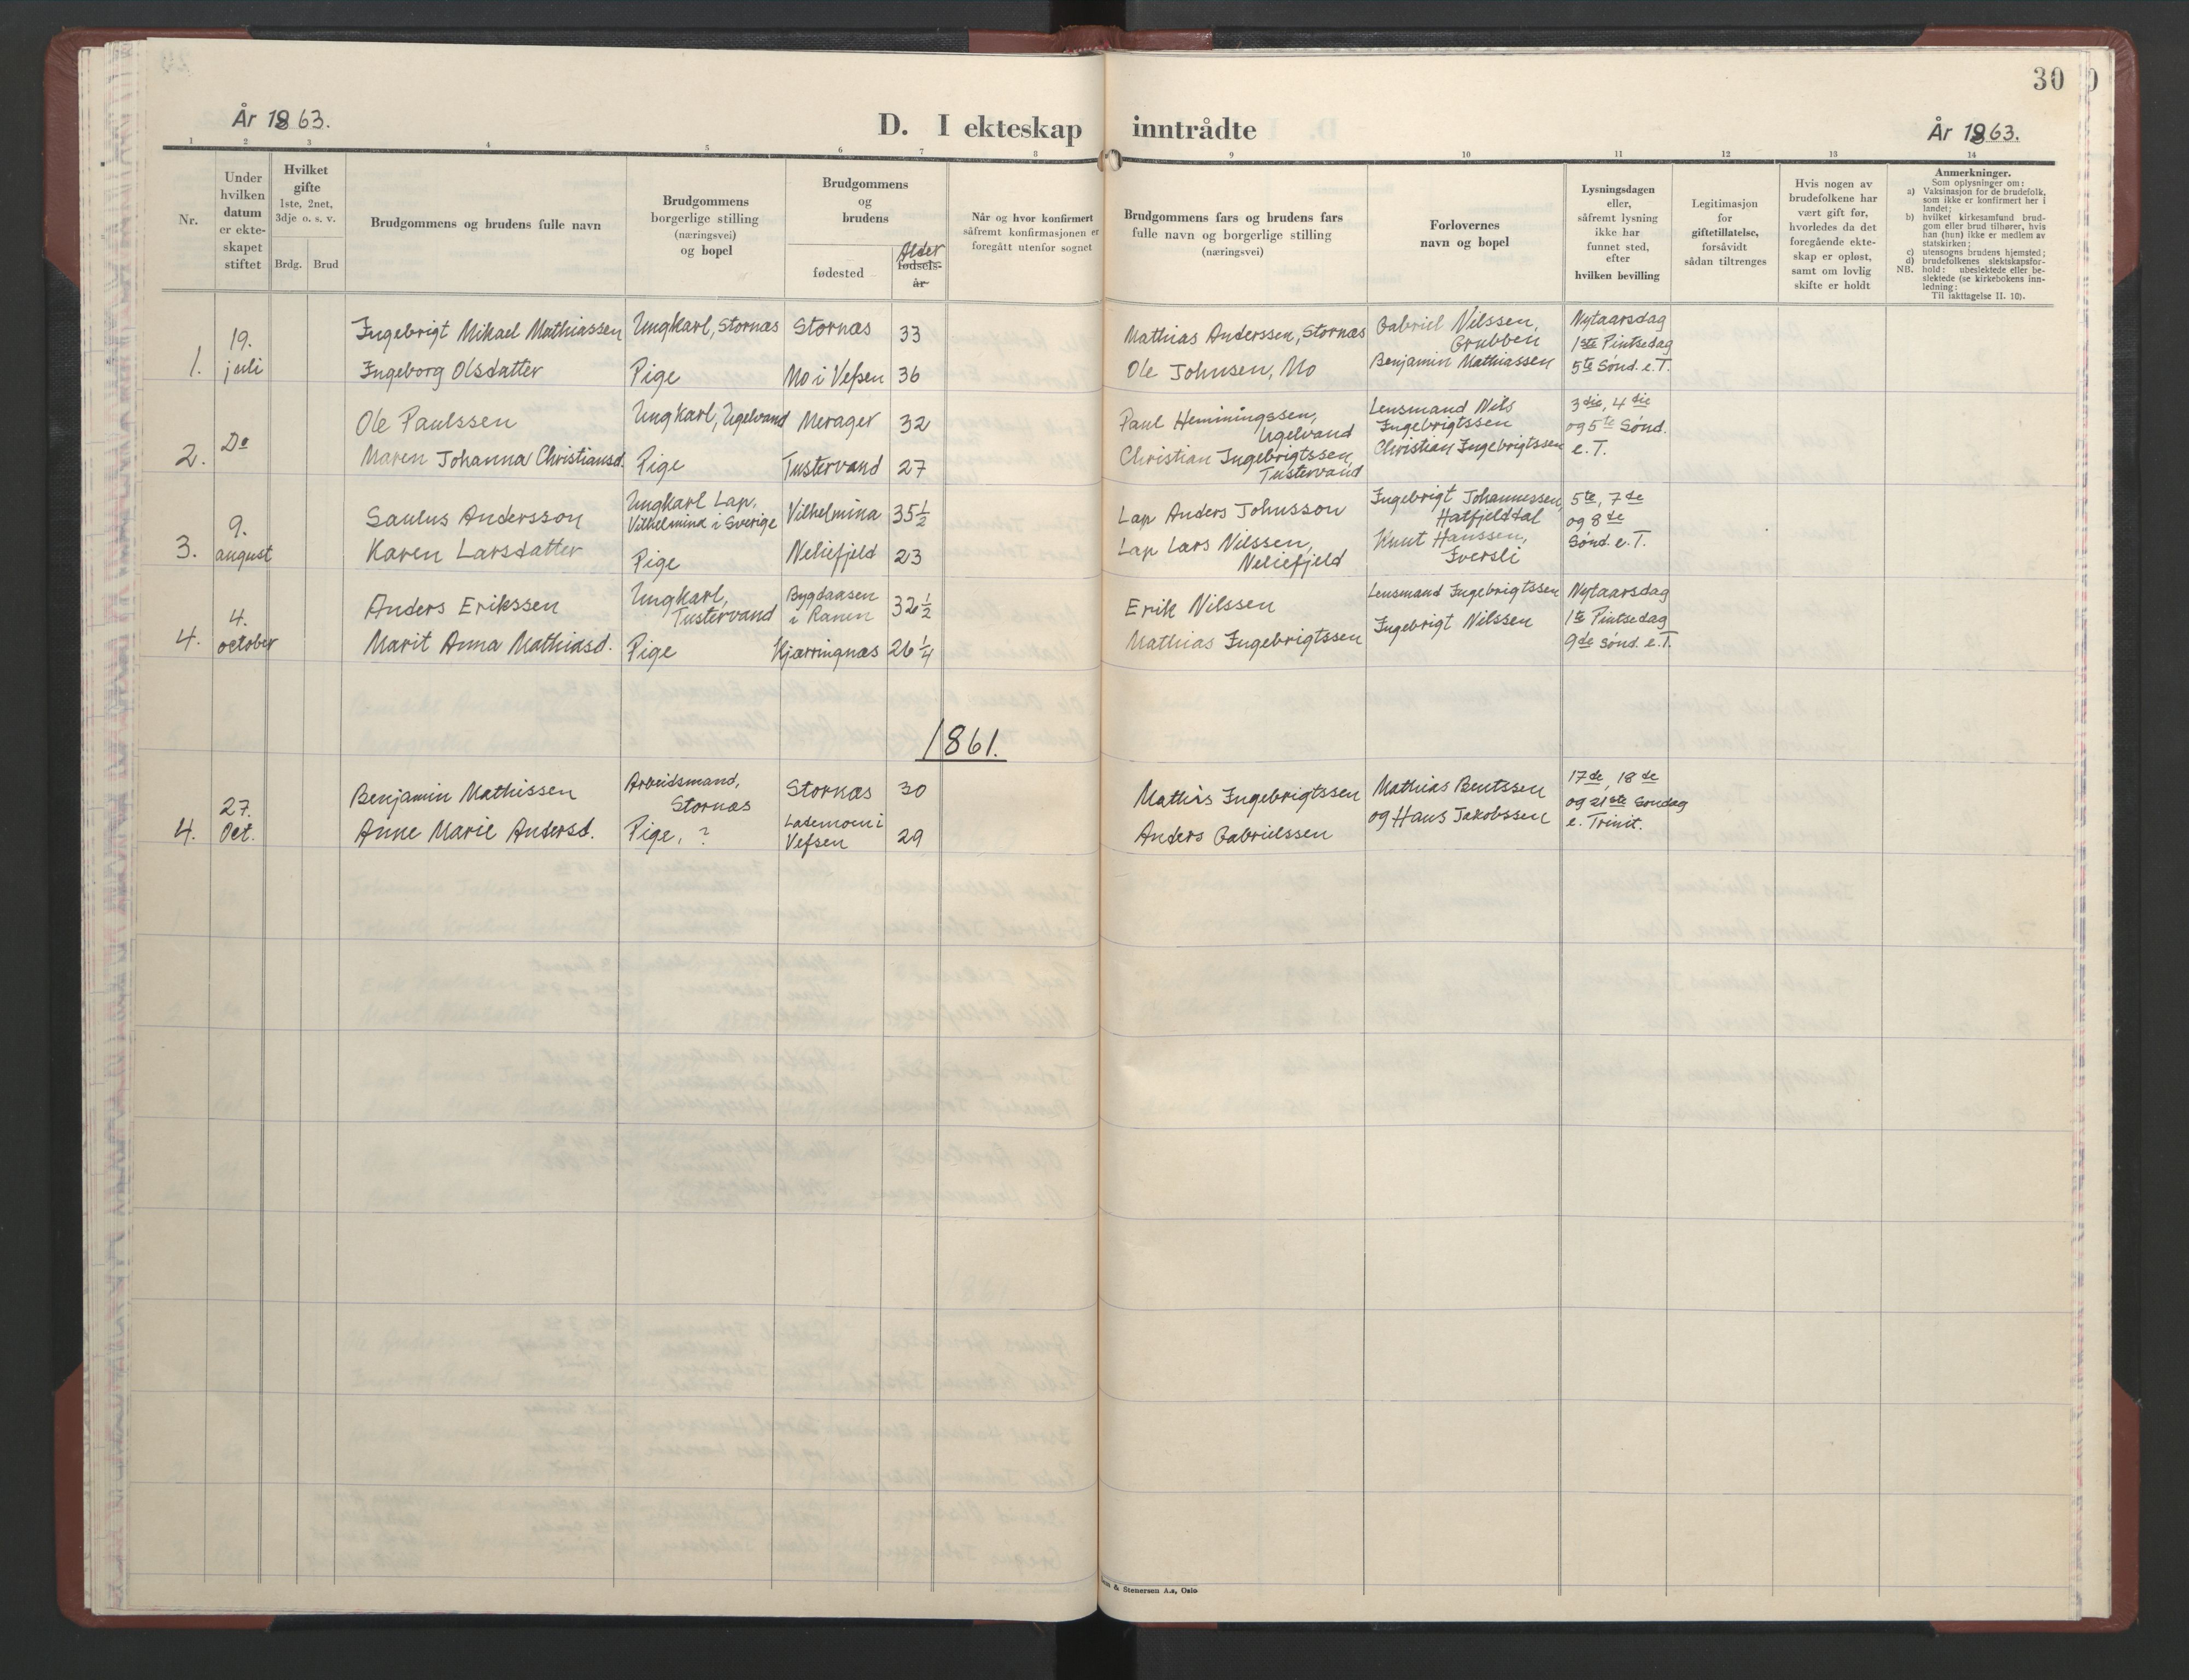 30
År 1863.
D. I ekteskap inntrådte
År 1863.
1 2 3 4 5 6 7 8 9 10 11 12 13 14
Nr.
Under
hvilken
datum
er ekte-
skapet
stiftet
Hvilket
gifte
1ste, 2net,
3dje o. s. v.
Brdg.
Brud
Brudgommens og brudens fulle navn
Brudgommens
borgerlige stilling
(næringsvei)
og bopel
Brudgommens
og
brudens
fødested
Alder
fødsels-
år
Når og hvor konfirmert
såfremt konfirmasjonen er
foregått utenfor sognet
Brudgommens fars og brudens fars
fulle navn og borgerlige stilling
(næringsvei)
Forlovernes
navn og bopel
Lysningsdagen
eller,
såfremt lysning
ikke har
funnet sted,
efter
hvilken bevilling
Legitimasjon
for
giftetillatelse,
forsåvidt
sådan tiltrenges
Hvis nogen av
brudefolkene har
vært gift før,
hvorledes da det
foregående ekte-
skap er opløst,
samt om lovlig
skifte er holdt
Anmerkninger.
Som oplysninger om:
a) Vaksinasjon for de brudefolk,
som ikke er konfirmert her i
landet;
b) hvilket kirkesamfund brud-
gom eller brud tilhører, hvis
han (hun) ikke er medlem av
statskirken;
c) utensogns brudens hjemsted;
d) brudefolkenes slektskapsfor-
hold: ubeslektede eller be-
slektede (se kirkebokens inn-
ledning:
NB.
Til iakttagelse II. 10).
1.
19.
juli
Ingebrigt Mikael Mathiassen
Ungkarl, Stornæs
Stornæs
33
Mathias Anderssen, Stornæs
Gabriel Nilssen,
Grubben
Nytaarsdag
1ste Pintsedag
Ingeborg Olsdatter
Pige
Mo i Vefsen
36
Ole Johnsen, Mo
Benjamin Mathiassen
5te Sønd. e. T.
2.
Do
Ole Paulssen
Ungkarl, Ugelvand
Merager
32
Paul Hemmingssen,
Ugelvand
Lensmand Nils
Ingebrigtssen
3die, 4die
og 5te Sønd.
Maren Johanna Christiansd.
Pige
Tustervand
27
Christian Ingebrigtssen,
Tustervand
Christian Ingebrigtssen
e. T.
3.
9.
august
Saulus Andersson
Ungkarl Lap.
Vilhelmina i Sverige
Vilhelmina
35½
Lap Anders Johnsson
Ingebrigt Johannessen,
Hatfjelddal
5te, 7de
og 8de
Karen Larsdatter
Pige
Neliefjeld
23
Lap Lars Nilssen,
Neliefjeld
Knut Hanssen,
Iversli
Sønd. e. T.
4.
4.
october
Anders Erikssen
Ungkarl,
Tustervand
Bygdaasen
i Ranen
32½
Erik Nilssen
Lensmand Ingebrigtssen
Nytaarsdag
1te Pintsedag
Marit Anna Mathiasd.
Pige
Kjærringnæs
26¼
Mathias Ingebrigtssen
Ingebrigt Nilssen
9de Sønd. e. T.
1861.
4.
27.
Oct.
Benjamin Mathissen
Arbeidsmand,
Stornæs
Stornæs
30
Mathis Ingebrigtssen
Mathias Bentssen
17de, 18de
og 21ste Søndag
Anne Marie Andersd.
Pige, ?
Lademoen i
Vefsen
29
Anders Gabrielssen
og Hans Jakobssen
e. Trinit.
& Stenersen A.s, Oslo